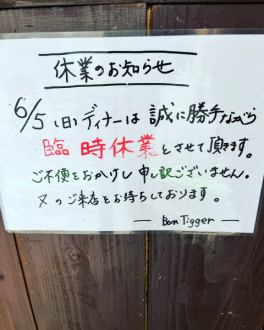 休業のお知らせ
6/5(日)ディナーは 誠に勝手ながら
臨時休業とさせて頂きます。
ご不便をおかけし 申し訳ございません。
又のご来店をお待ちしております。
― Bon Tigger ―